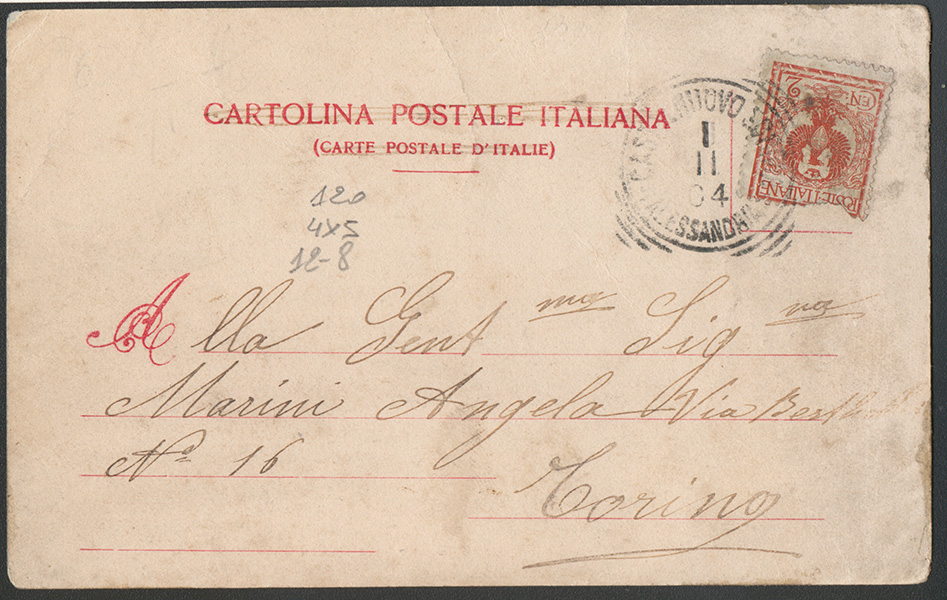 CARTOLINA POSTALE ITALIANA
(CARTE POSTALE D'ITALIE)
1
11
04
ALESSANDRIA
POSTE ITALIANE
CEN: 2
120
4x5
12-8
Alla Gent ma Sig na
Marini Angela Via
No 16
Torino